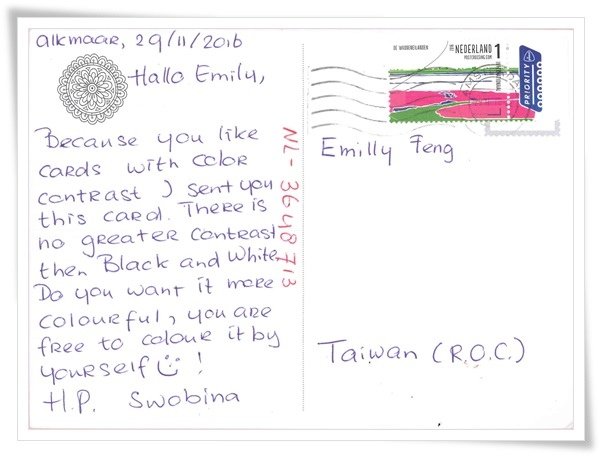 alkmaar, 29/11/2016
Hallo Emily,
Because you like
cards with color
contrast I sent you
this card. There is
no greater contrast
then Black and White
Do you want it more
colourful, you are
free to colour it by
yourself !
H.P. Swobina
NL-3648713
DE WADDENEILANDEN
NEDERLAND 1
POSTCROSSING.COM
PRIORITY
Emilly Feng
Taiwan (R.O.C.)